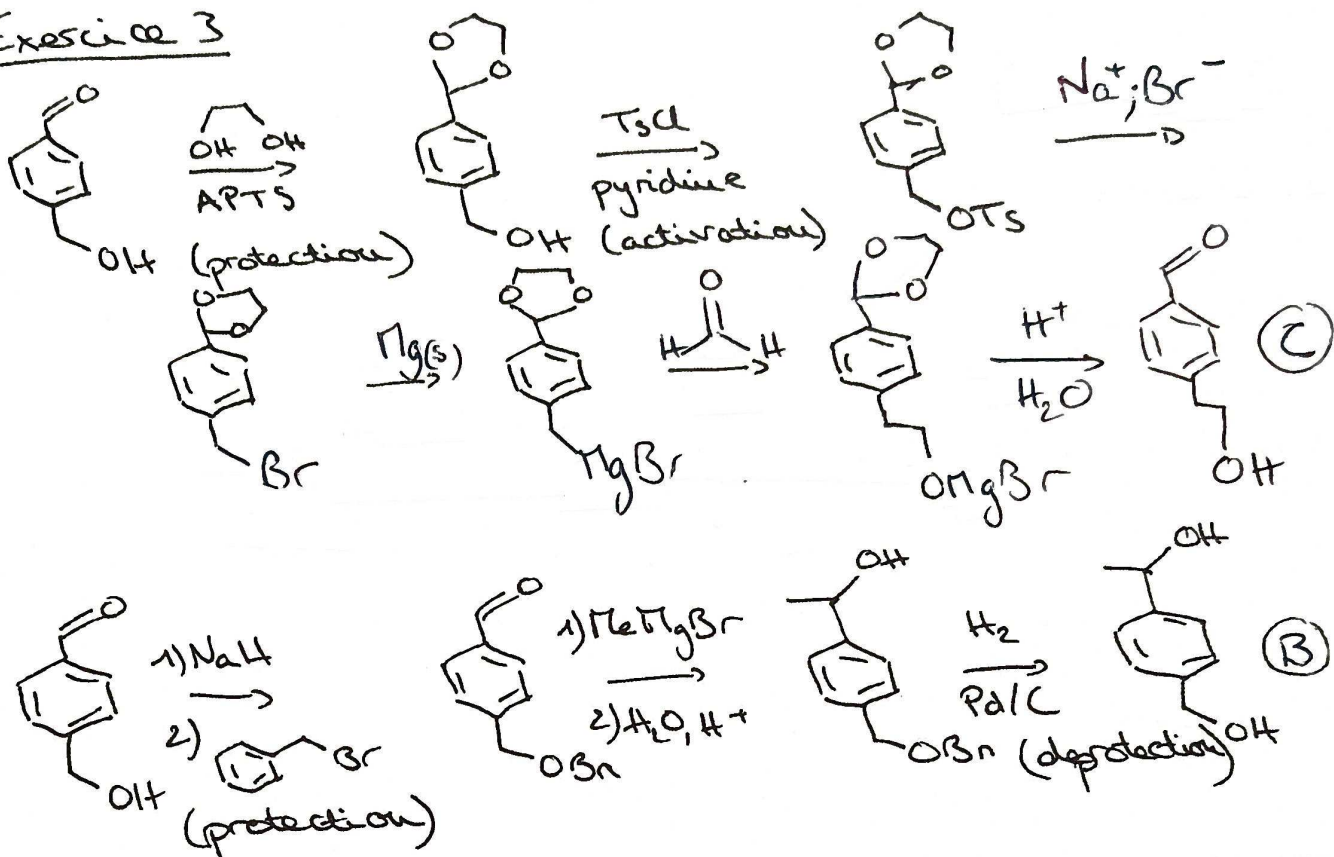 Exercice 3
O
OH OH
APTS
OH (protection)
O
O
OH
TsCl
pyridine
(activation)
O
O
OTs
Na⁺;Br⁻
O
O
Br
Mg(s)
O O
MgBr
O
H H
O
O
OMgBr
H⁺
H₂O
O
OH
C
O
OH
1) NaH
2) Br
(protection)
O
OBn
1) MeMgBr
2) H₂O, H⁺
OH
OBn
H₂
Pd/C
(deprotection)
OH
OH
B